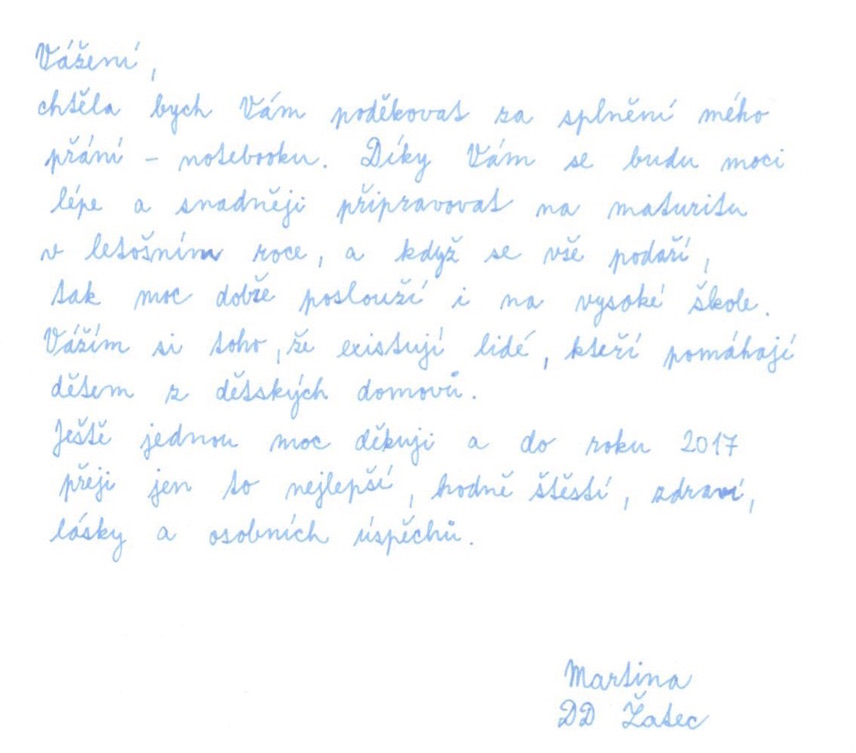 Vážení,
chtěla bych Vám poděkovat za splnění mého
přání - notebooku. Díky Vám se budu moci
lépe a snadněji připravovat na maturitu
v letošním roce, a když se vše podaří,
tak moc dobře poslouží i na vysoké škole.
Vážím si toho, že existují lidé, kteří pomáhají
dětem z dětských domovů.
Ještě jednou moc děkuji a do roku 2017
přeji jen to nejlepší, hodně štěstí, zdraví,
lásky a osobních úspěchů.
Martina
DD Žatec